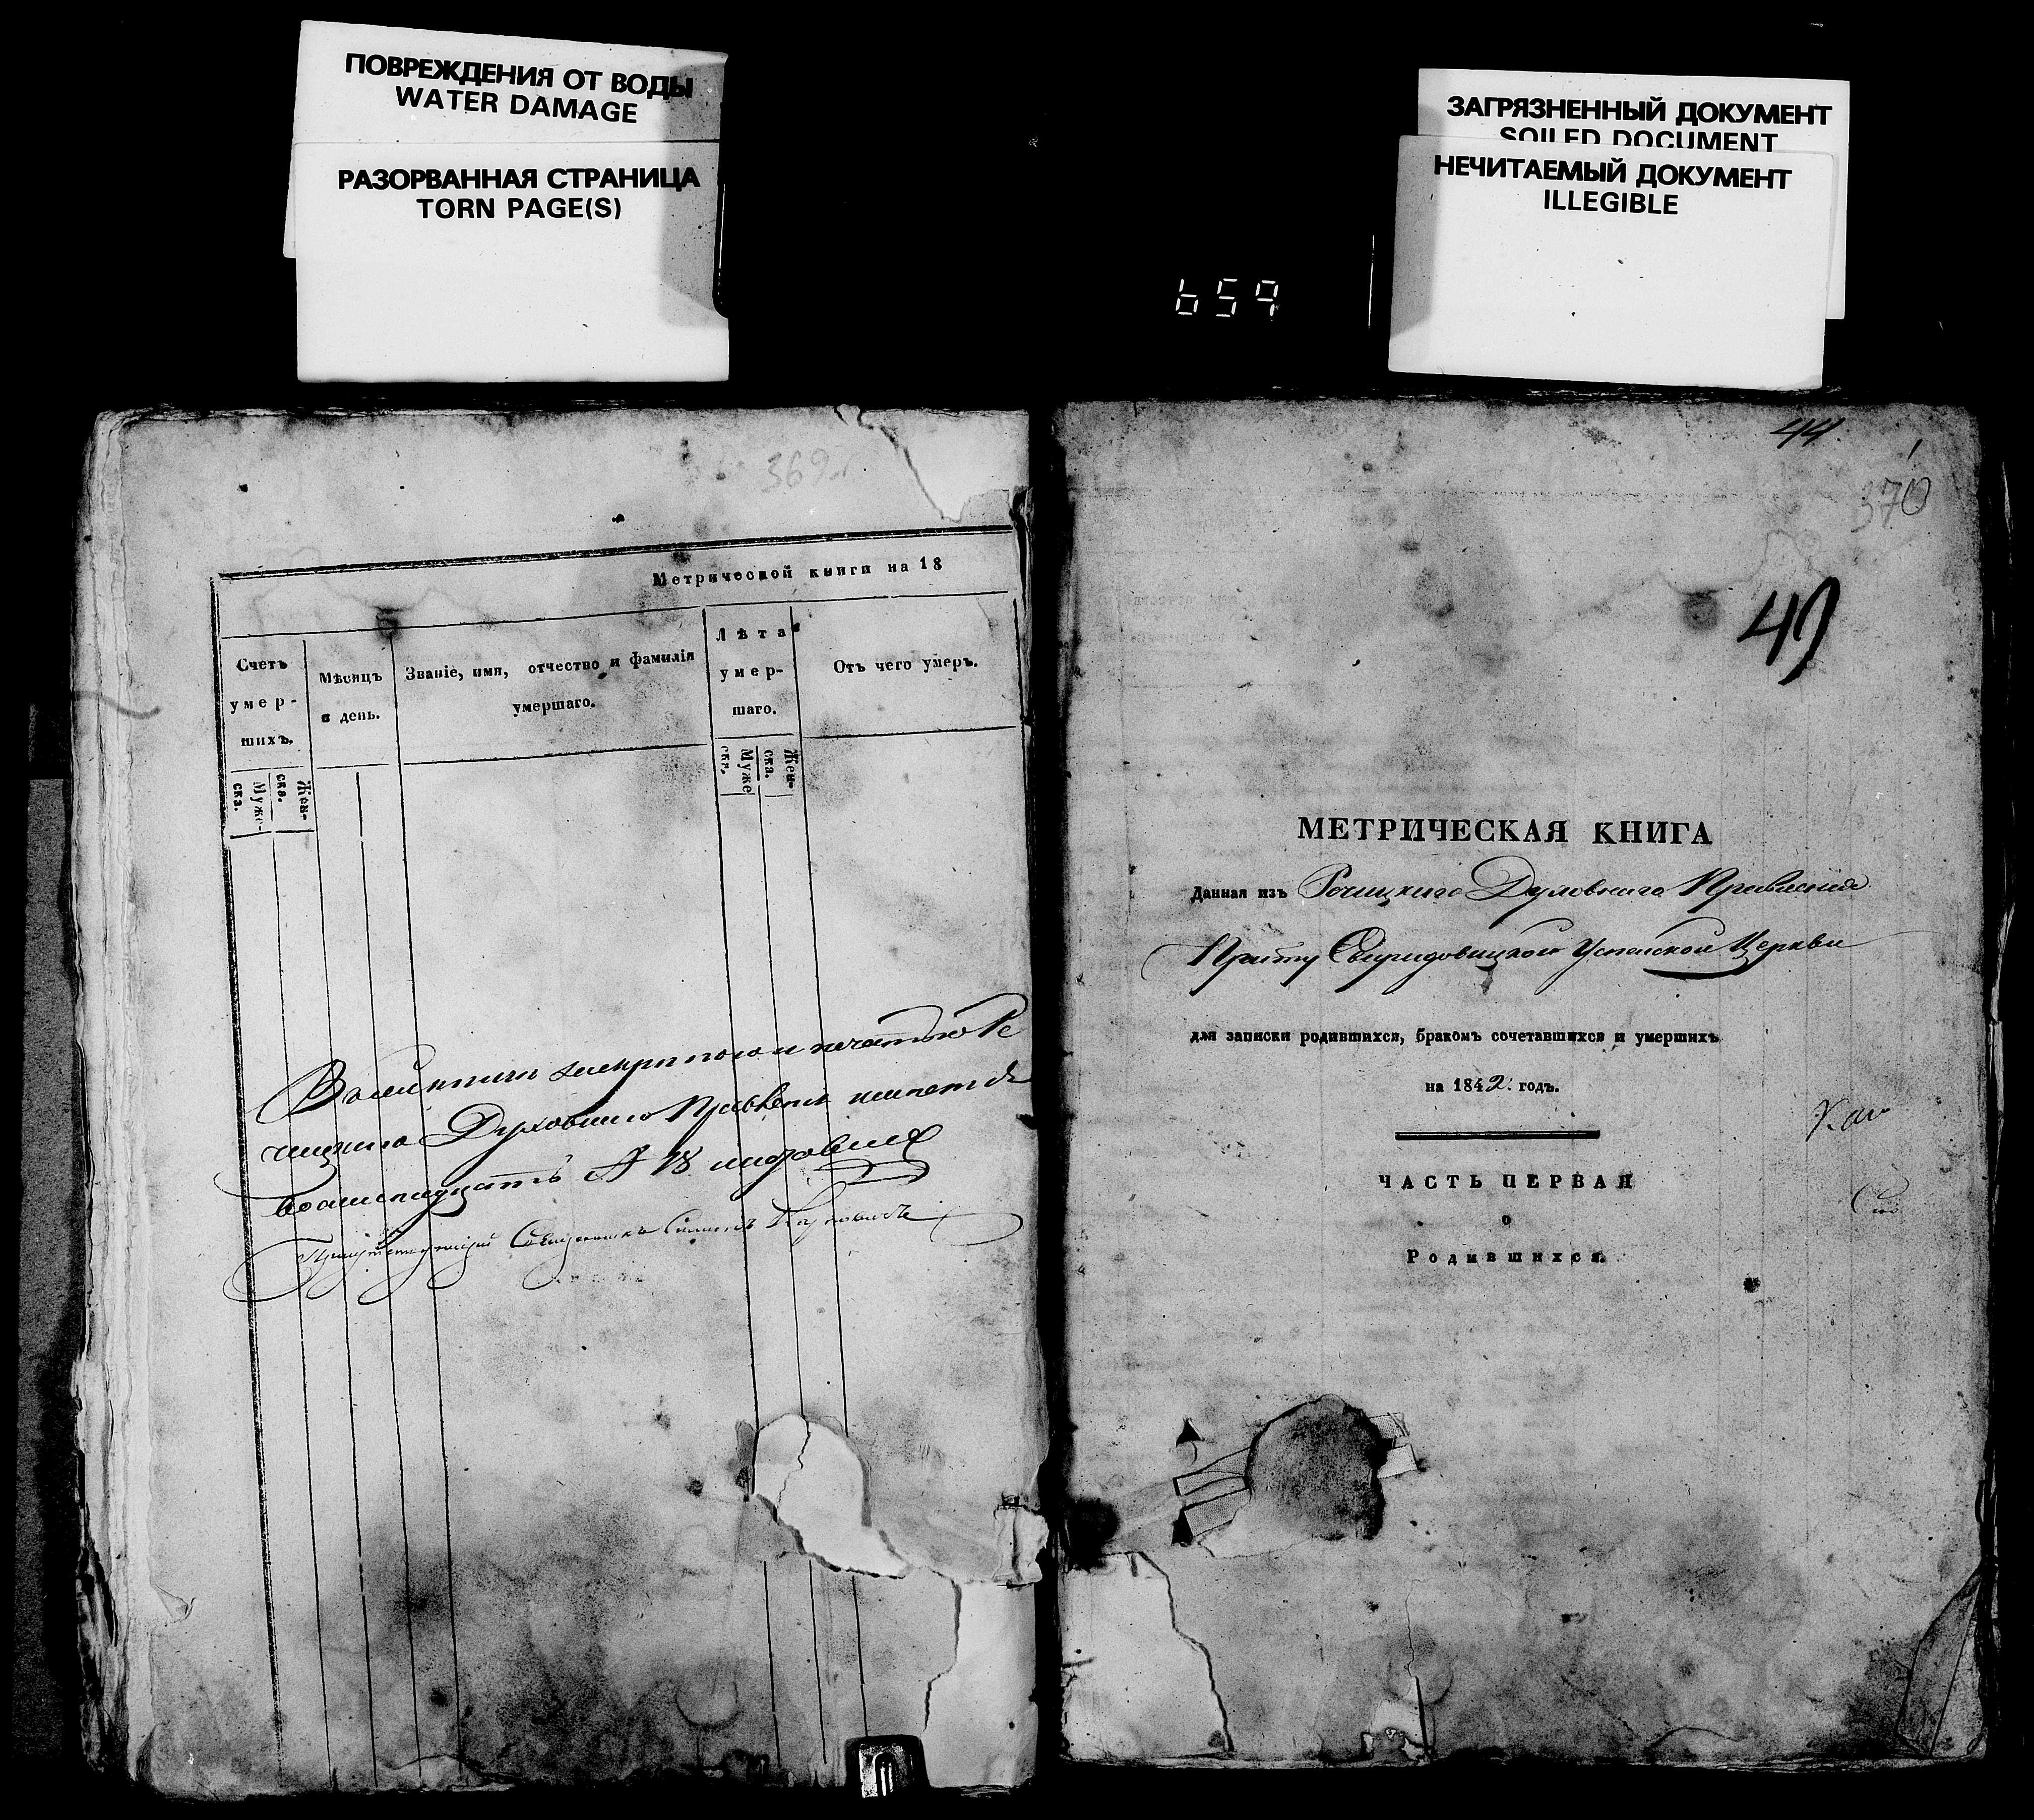 ПОВРЕЖДЕНИЯ ОТ ВОДЫ
WATER DAMAGE
РАЗОРВАННАЯ СТРАНИЦА
TORN PAGE(S)
ЗАГРЯЗНЕННЫЙ ДОКУМЕНТ
SOILED DOCUMENT
НЕЧИТАЕМЫЙ ДОКУМЕНТ
ILLEGIBLE
659
369
Метрической книги на 18
Счетъ умершихъ.
Мужеска.
Женска.
Мѣсяцъ и день.
Званіе, имя, отчество и фамилія
умершаго.
Лѣта умершаго.
Мужеска.
Женска.
Отъ чего умеръ.
В сей книги за скрепою и печатью Ре
чицкаго Духовнаго Правленія листовъ
восемнадцать № 18 листовъ
Присутствующій Священникъ
44
370
49
МЕТРИЧЕСКАЯ КНИГА
Данная изъ Речицкаго Духовнаго Правленія
Причту Свиридовицкой Успенской Церкви
для записки родившихся, бракомъ сочетавшихся и умершихъ
на 1842 годъ.
ЧАСТЬ ПЕРВАЯ
о
Родившихся.